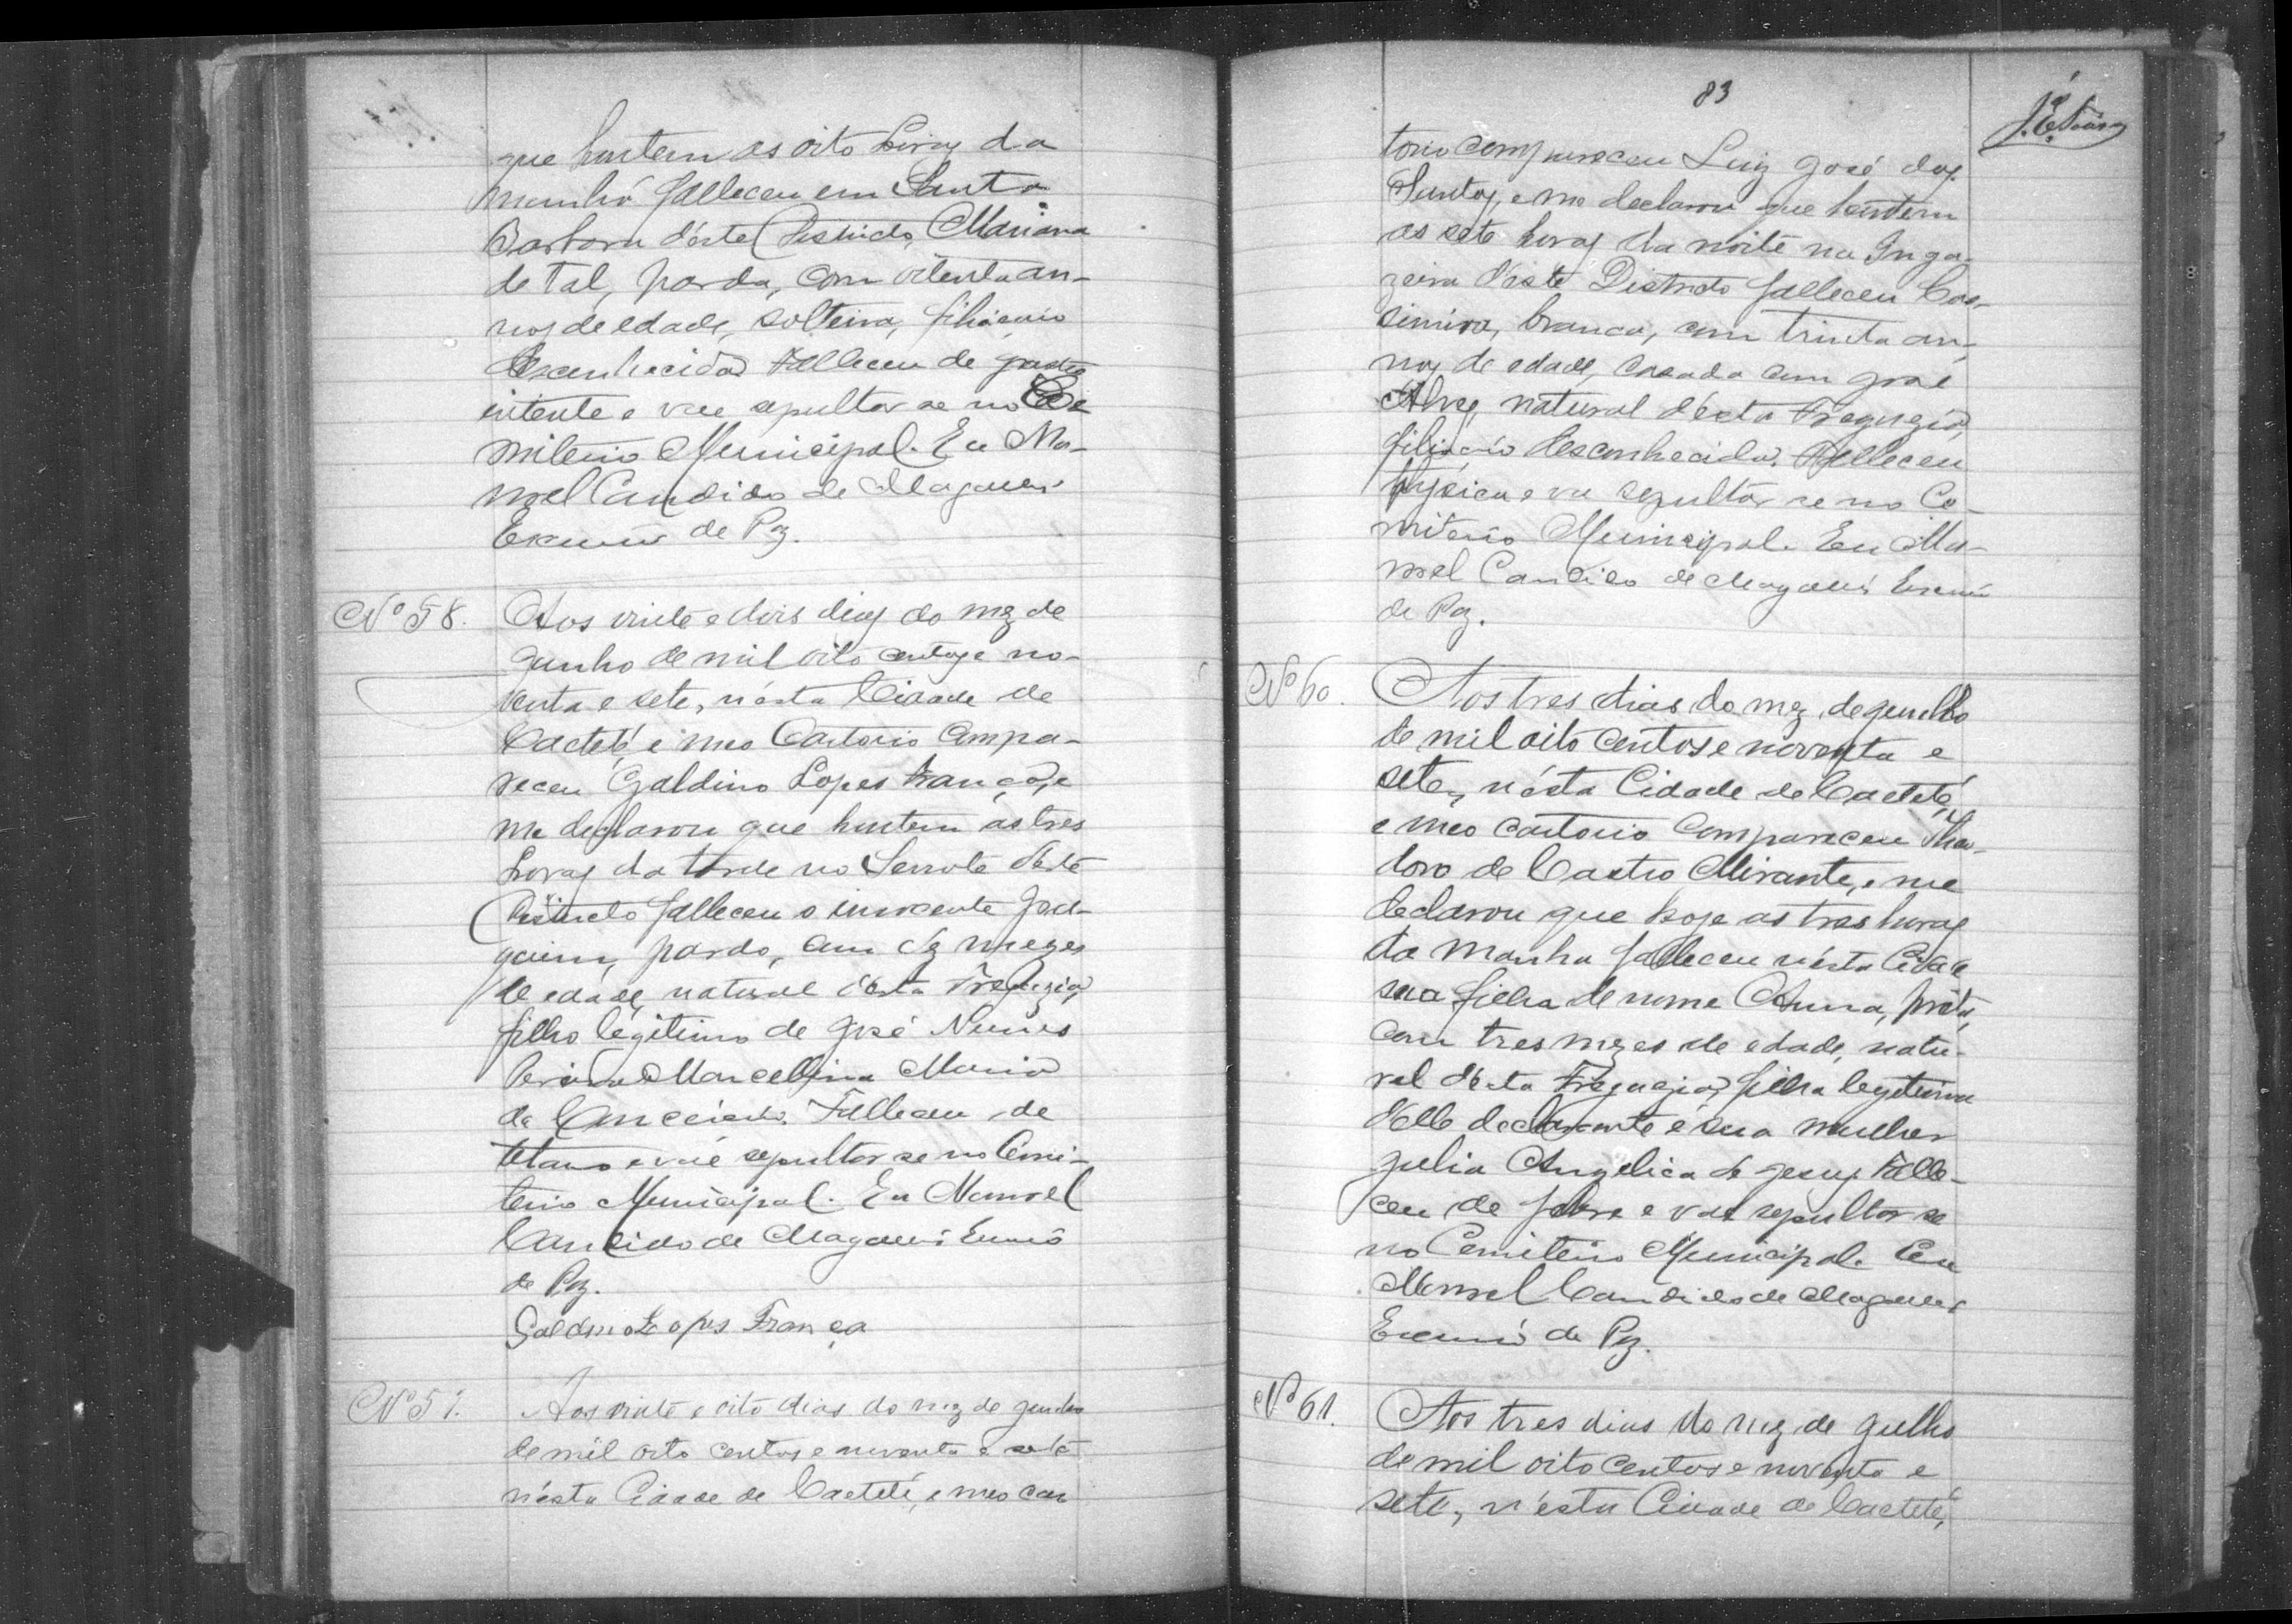 que hontem as oito horas da
manhã falleceu em Santa
Barbara d'éste Districto, Mariana
de tal, parda, com oitenta an-
nos de edade, solteira, filiação
desconhecida. Falleceu de gastro
intente e vae sepultar se no Ce
miterio Municipal. Eu Ma-
noel Candido de Magalhães
Escrivão de Paz.
Nº 58. Aos vinte e dois dias do mez de
Junho de mil oito centos e no-
venta e sete, n'ésta Cidade de
Caeteté, e meo Cartorio Compa-
receu Galdino Lopes França, e
me declarou que hontem as tres
horas da tarde no Serrote d'éste
Districto falleceu o innocente Joa-
quim, pardo, com dez mezes
de edade, natural d'ésta Freguezia,
filho legitimo de José Nunes
e Marcelina Maria
da Conceição. Falleceu de
tetano e vae sepultar se no Cemi-
terio Municipal. Eu Manoel
Candido de Magalhães Escrivão
de Paz.
Galdino Lopes França
Nº 59. Aos vinte e oito dias do mez de Junho
de mil oito centos e noventa e sete
n'ésta Cidade de Caeteté, e meo car
83
torio compareceu Luiz José dos
Santos, e me declarou que hontem
as sete horas da noite na Inga-
zeira d'éste Districto falleceu Cas-
simira, branca, com trinta an-
nos de edade, casada com José
Alves, natural d'ésta Freguezia,
filiação desconhecida. Falleceu
physica e vae sepultar se no Ce-
miterio Municipal. Eu Ma-
noel Candido de Magalhães Escrivão
de Paz.
Nº 60. Aos tres dias do mez de Julho
de mil oito centos e noventa e
sete, n'ésta Cidade de Caeteté,
e meo cartorio Compareceu Theo-
doro de Castro Mirante, e me
declarou que hoje as tres horas
da manha falleceu n'ésta Cidade
sua filha de nome Anna, preta,
com tres mezes de edade, natu-
ral d'ésta Freguezia, filha legitima
d'elle declarante e sua mulher
Julia Angelica de Jesus. Falle-
ceu de febre e vae sepultar se
no Cemiterio Municipal. Eu
Manoel Candido de Magalhães
Escrivão de Paz.
Nº 61. Aos tres dias do mez de Julho
de mil oito centos e noventa e
sete, n'ésta Cidade de Caeteté,